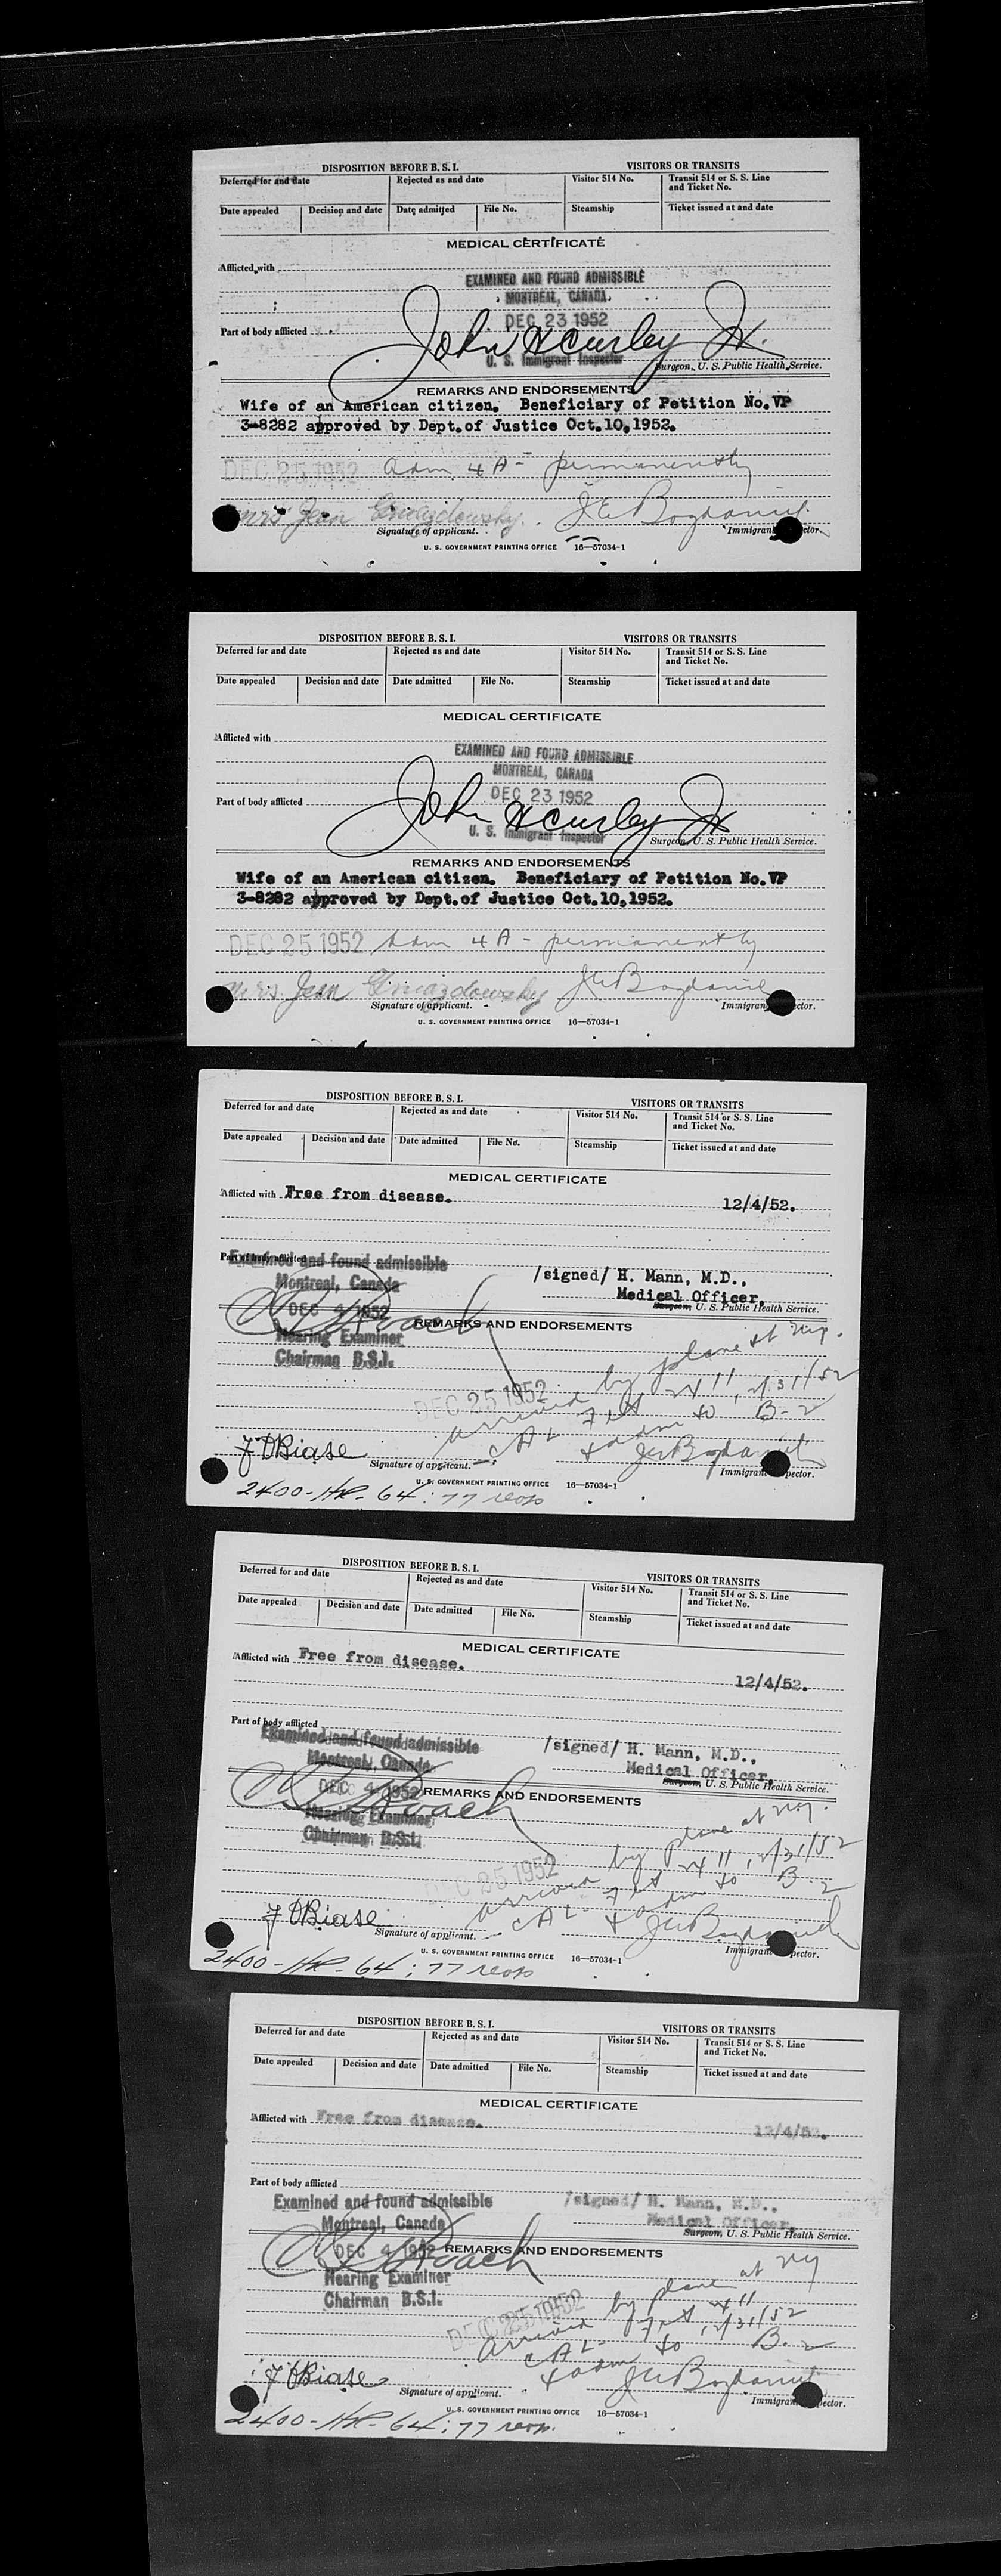 DISPOSITION BEFORE B. S. I. VISITORS OR TRANSITS
Deferred for and date Rejected as and date Visitor 514 No. Transit 514 or S. S. Line and Ticket No.
Date appealed Decision and date Date admitted File No. Steamship Ticket issued at and date
MEDICAL CERTIFICATE
Afflicted with
EXAMINED AND FOUND ADMISSIBLE
MONTREAL, CANADA
DEC 23 1952
Part of body afflicted
John H Curley Jr.
U. S. Immigrant Inspector
Surgeon, U. S. Public Health Service.
REMARKS AND ENDORSEMENTS
Wife of an American citizen. Beneficiary of Petition No. VP
3-8282 approved by Dept. of Justice Oct. 10, 1952.
DEC 25 1952 adm 4 A - permanently
Mrs Jean Gwiazdowsky
Signature of applicant. Immigrant
U. S. GOVERNMENT PRINTING OFFICE 16—57034-1
DISPOSITION BEFORE B. S. I. VISITORS OR TRANSITS
Deferred for and date Rejected as and date Visitor 514 No. Transit 514 or S. S. Line and Ticket No.
Date appealed Decision and date Date admitted File No. Steamship Ticket issued at and date
MEDICAL CERTIFICATE
Afflicted with
EXAMINED AND FOUND ADMISSIBLE
MONTREAL, CANADA
DEC 23 1952
Part of body afflicted
John H Curley Jr
U. S. Immigrant Inspector
Surgeon, U. S. Public Health Service.
REMARKS AND ENDORSEMENTS
Wife of an American citizen. Beneficiary of Petition No. VP
3-8282 approved by Dept. of Justice Oct. 10, 1952.
DEC 25 1952 Adm 4 A - permanently
Mrs Jean Gwiazdowsky
Signature of applicant. Immigrant
U. S. GOVERNMENT PRINTING OFFICE 16—57034-1
DISPOSITION BEFORE B. S. I. VISITORS OR TRANSITS
Deferred for and date Rejected as and date Visitor 514 No. Transit 514 or S. S. Line and Ticket No.
Date appealed Decision and date Date admitted File No. Steamship Ticket issued at and date
MEDICAL CERTIFICATE
Afflicted with Free from disease. 12/4/52.
Part of body afflicted
Examined and found admissible
Montreal, Canada
/signed/ H. Mann, M.D.,
Medical Officer,
DEC 4 1952
Surgeon, U. S. Public Health Service.
REMARKS AND ENDORSEMENTS
Hearing Examiner
Chairman B.S.I.
DEC 25 1952
arrived by plane at
CAL
& adm to B-2
F DBiase
Signature of applicant. Immigrant
U. S. GOVERNMENT PRINTING OFFICE 16—57034-1
2400 - 64; 77
DISPOSITION BEFORE B. S. I. VISITORS OR TRANSITS
Deferred for and date Rejected as and date Visitor 514 No. Transit 514 or S. S. Line and Ticket No.
Date appealed Decision and date Date admitted File No. Steamship Ticket issued at and date
MEDICAL CERTIFICATE
Afflicted with Free from disease. 12/4/52.
Part of body afflicted
Examined and found admissible
Montreal, Canada
/signed/ H. Mann, M.D.,
Medical Officer,
DEC 4 1952
Surgeon, U. S. Public Health Service.
REMARKS AND ENDORSEMENTS
Hearing Examiner
Chairman B.S.I.
DEC 25 1952
arrived by plane at
CAL
& adm to B-2
F DBiase
Signature of applicant. Immigrant
U. S. GOVERNMENT PRINTING OFFICE 16—57034-1
2400 - 64; 77
DISPOSITION BEFORE B. S. I. VISITORS OR TRANSITS
Deferred for and date Rejected as and date Visitor 514 No. Transit 514 or S. S. Line and Ticket No.
Date appealed Decision and date Date admitted File No. Steamship Ticket issued at and date
MEDICAL CERTIFICATE
Afflicted with Free from disease. 12/4/52.
Part of body afflicted
Examined and found admissible
Montreal, Canada
/signed/ H. Mann, M.D.,
Medical Officer,
DEC 4 1952
Surgeon, U. S. Public Health Service.
REMARKS AND ENDORSEMENTS
Hearing Examiner
Chairman B.S.I.
DEC 25 1952
arrived by plane at NY
CAL
& adm to B-2
F DBiase
Signature of applicant. Immigrant
U. S. GOVERNMENT PRINTING OFFICE 16—57034-1
2400 - 64; 77